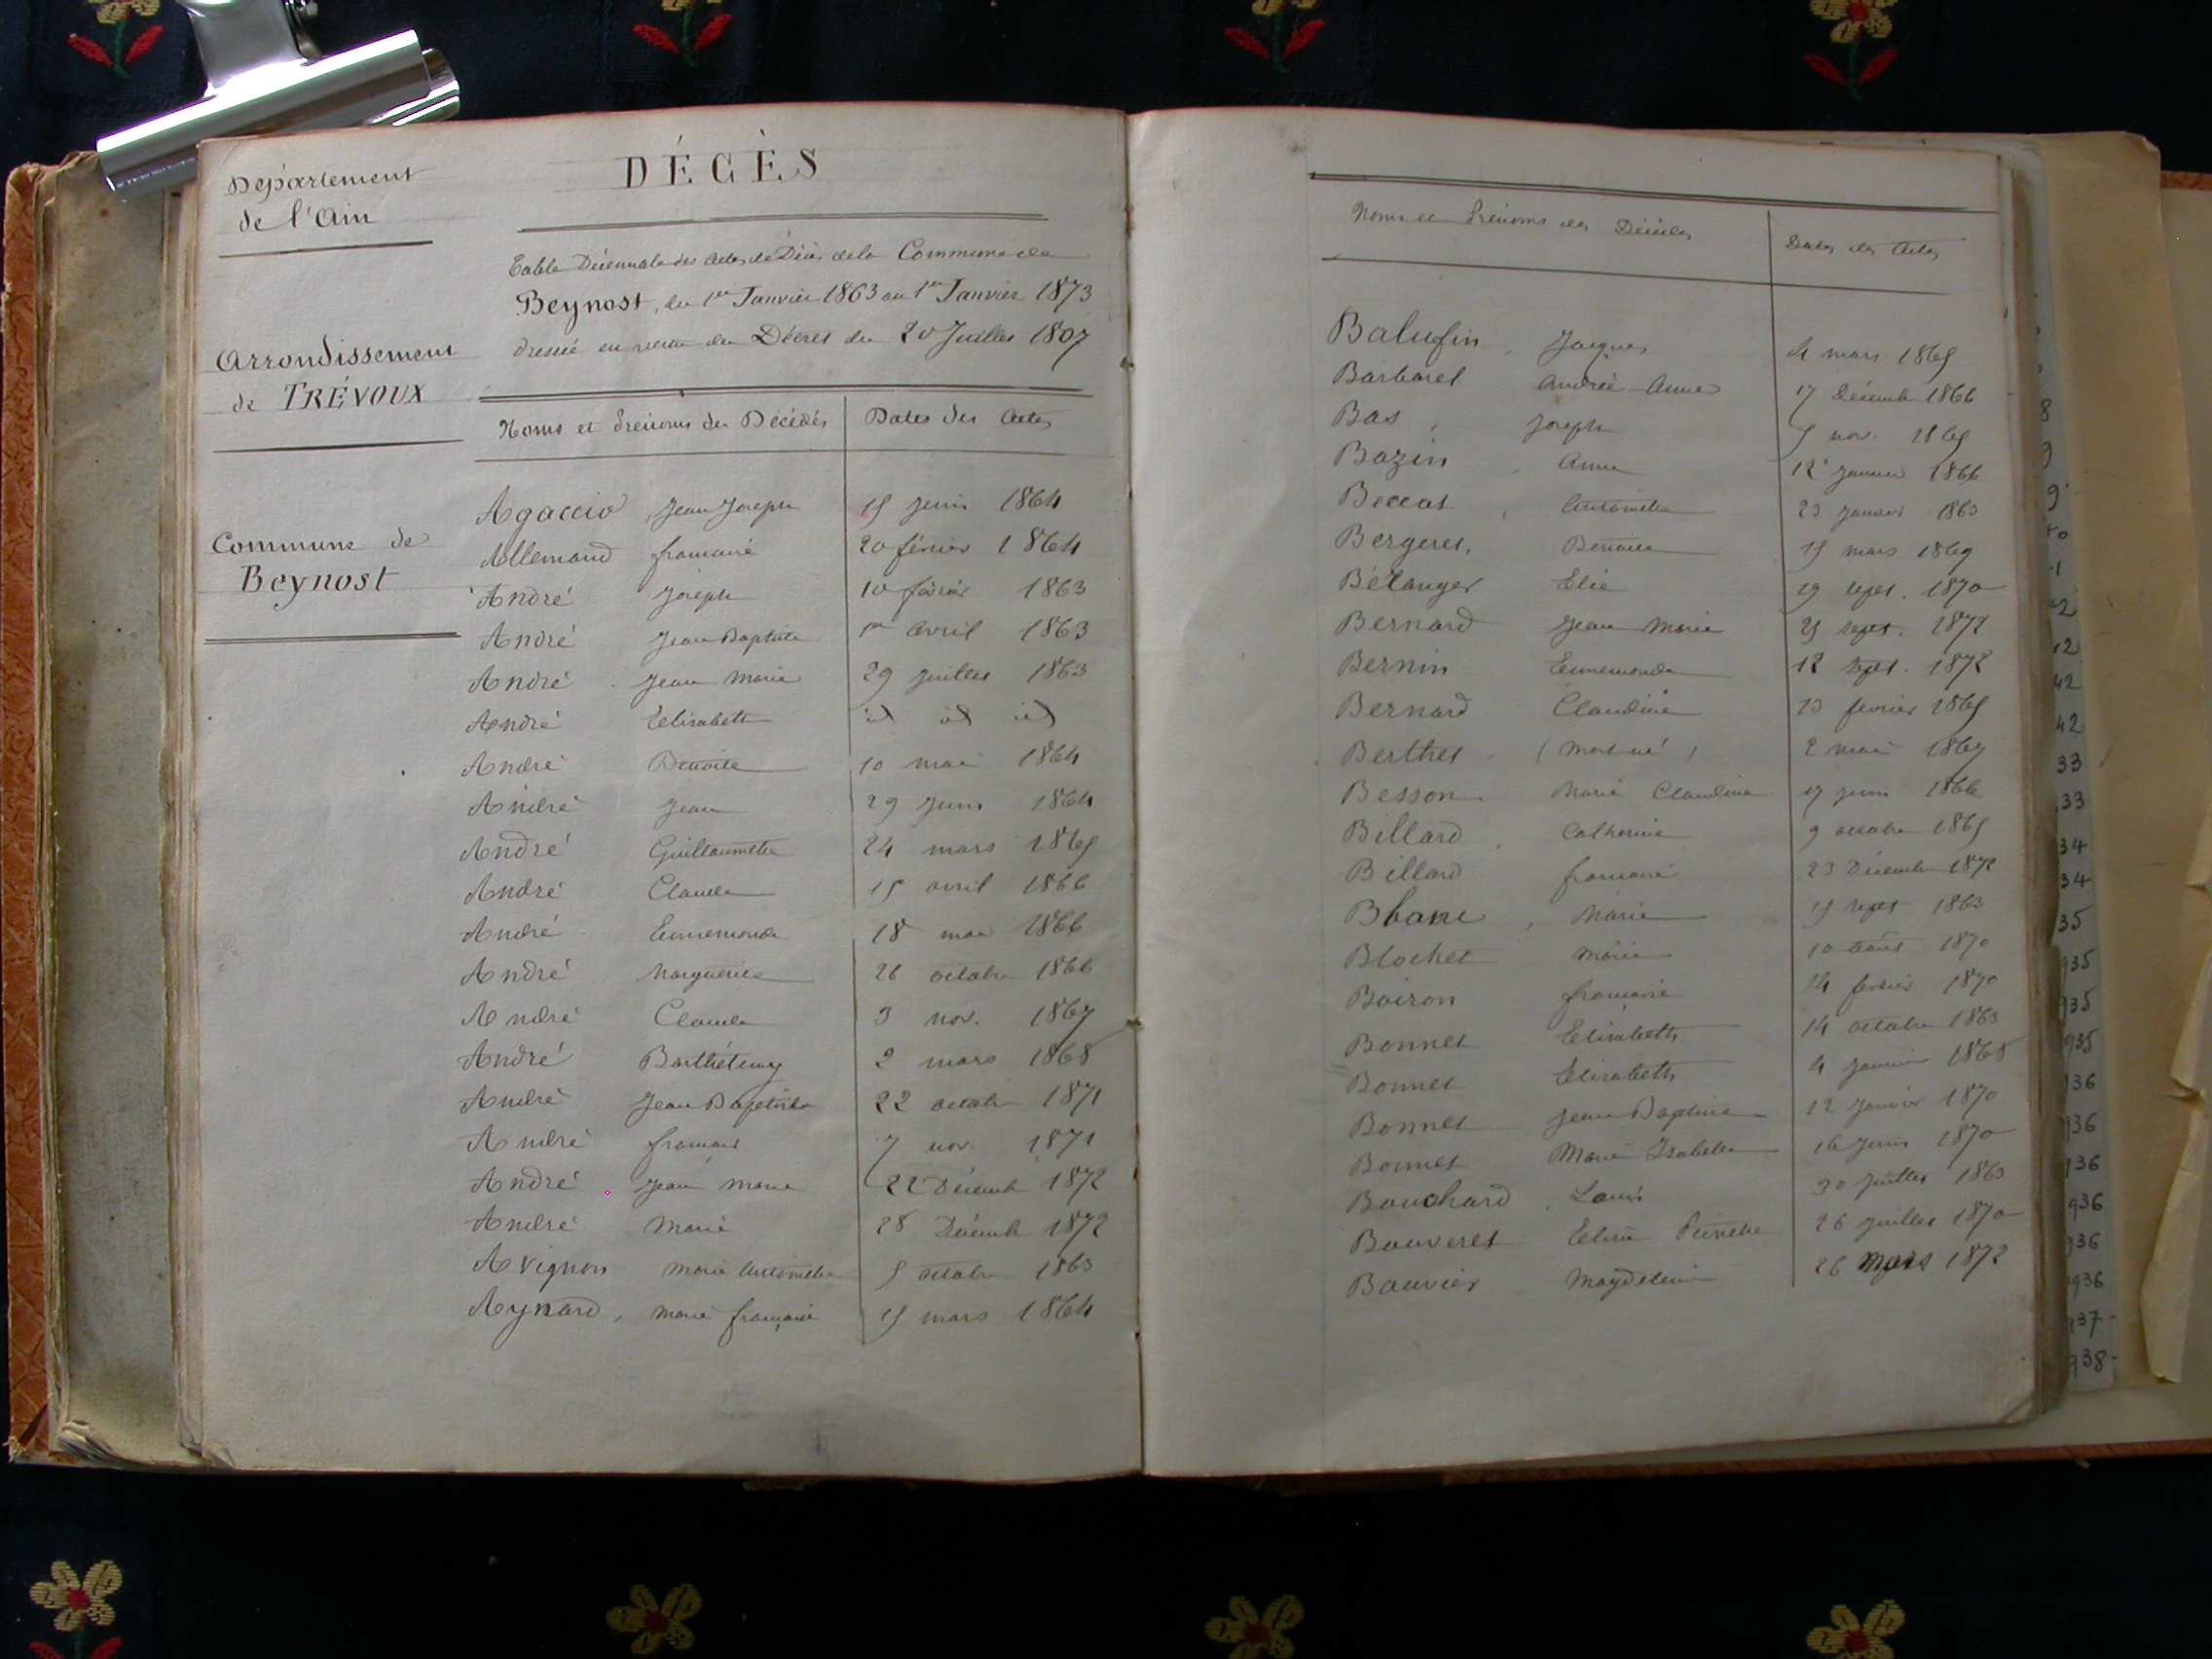 Département
de l'Ain
Arrondissement
de TRÉVOUX
Commune de
Beynost
DÉCÈS
Table Décennale des Actes de Décès de la Commune de
Beynost, du 1er Janvier 1863 au 1er Janvier 1873
dressée en vertu du Décret du 20 Juillet 1807
Noms et Prénoms des Décédés Dates des Actes
Agaccio, Jean Joseph 15 juin 1864
Allemand françoise 20 février 1864
André Joseph 10 février 1863
André Jean Baptiste 1er avril 1863
André Jean Marie 29 juillet 1863
André Elisabeth id id id
André Benoite 10 mai 1864
André Jean 29 juin 1864
André Guillaumette 24 mars 1865
André Claude 15 avril 1866
André Ennemonde 18 mai 1866
André Marguerite 26 octobre 1866
André Claude 3 nov. 1867
André Barthélemy 2 mars 1868
André Jean Baptiste 22 octob 1871
André françois 7 nov. 1871
André Jean Marie 22 Décemb 1872
André Marie 28 Décemb 1872
Avignon Marie Antoinette 5 octobre 1863
Aynard, Marie françoise 15 mars 1864
Noms et Prénoms des Décédés Dates des Actes
Balufin, Jacques 4 mars 1865
Barbaret Andrée Anne 17 décemb 1866
Bas, Joseph 5 nov. 1865
Bazin, Anne 12 janvier 1866
Beccat, Antoinette 23 janvier 1863
Bergeret, Benoite 15 mars 1869
Bélanger Elie 29 sept. 1870
Bernard Jean Marie 25 sept. 1872
Bernin Ennemonde 12 sept. 1872
Bernard Claudine 13 février 1865
Berthet (mort né) 2 mai 1867
Besson Marie Claudine 17 juin 1866
Billard, Catherine 9 octobre 1865
Billard françoise 23 Décemb 1872
Blanc, Marie 15 sept 1863
Blochet Marie 10 août 1870
Boiron françoise 14 février 1870
Bonnet Elisabeth 14 octobre 1863
Bonnet Elisabeth 4 janvier 1868
Bonnet Jean Baptiste 12 janvier 1870
Bonnet Marie Isabelle 16 juin 1870
Bouchard, Louis 30 juillet 1863
Bouveret Elisa Pierrette 26 juillet 1870
Bouvier Magdeleine 26 Mars 1872